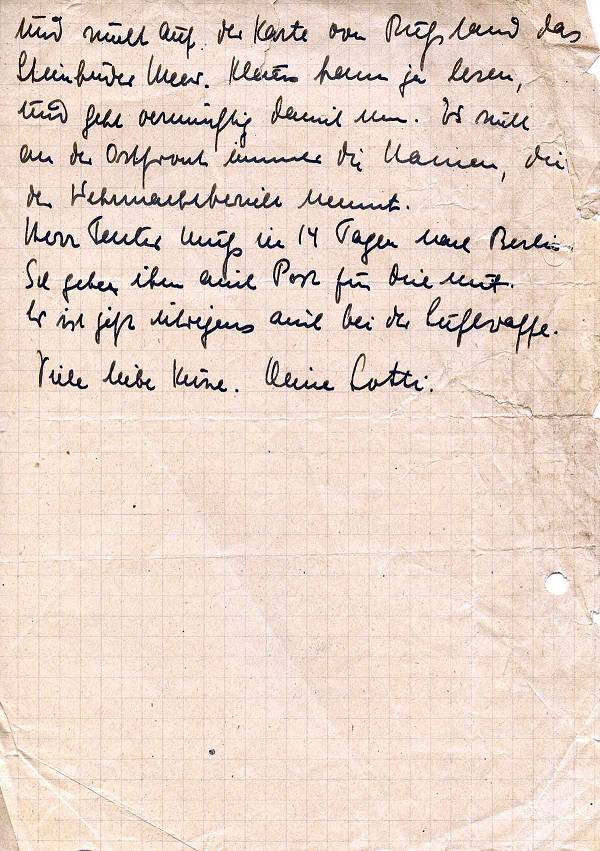 und sucht auf der Karte von Rußland das
Steinhuder Meer. Klaus kann ja lesen,
und geht vernünftig damit um. Er sucht
an der Ostfront immer die Namen, die
der Wehrmachtsbericht nennt.
Herr muß in 14 Tagen nach Berlin.
Ich gebe ihm auch Post für dich mit.
Er ist jetzt übrigens auch bei der Luftwaffe.
Viele liebe Küsse. Deine Lotti.